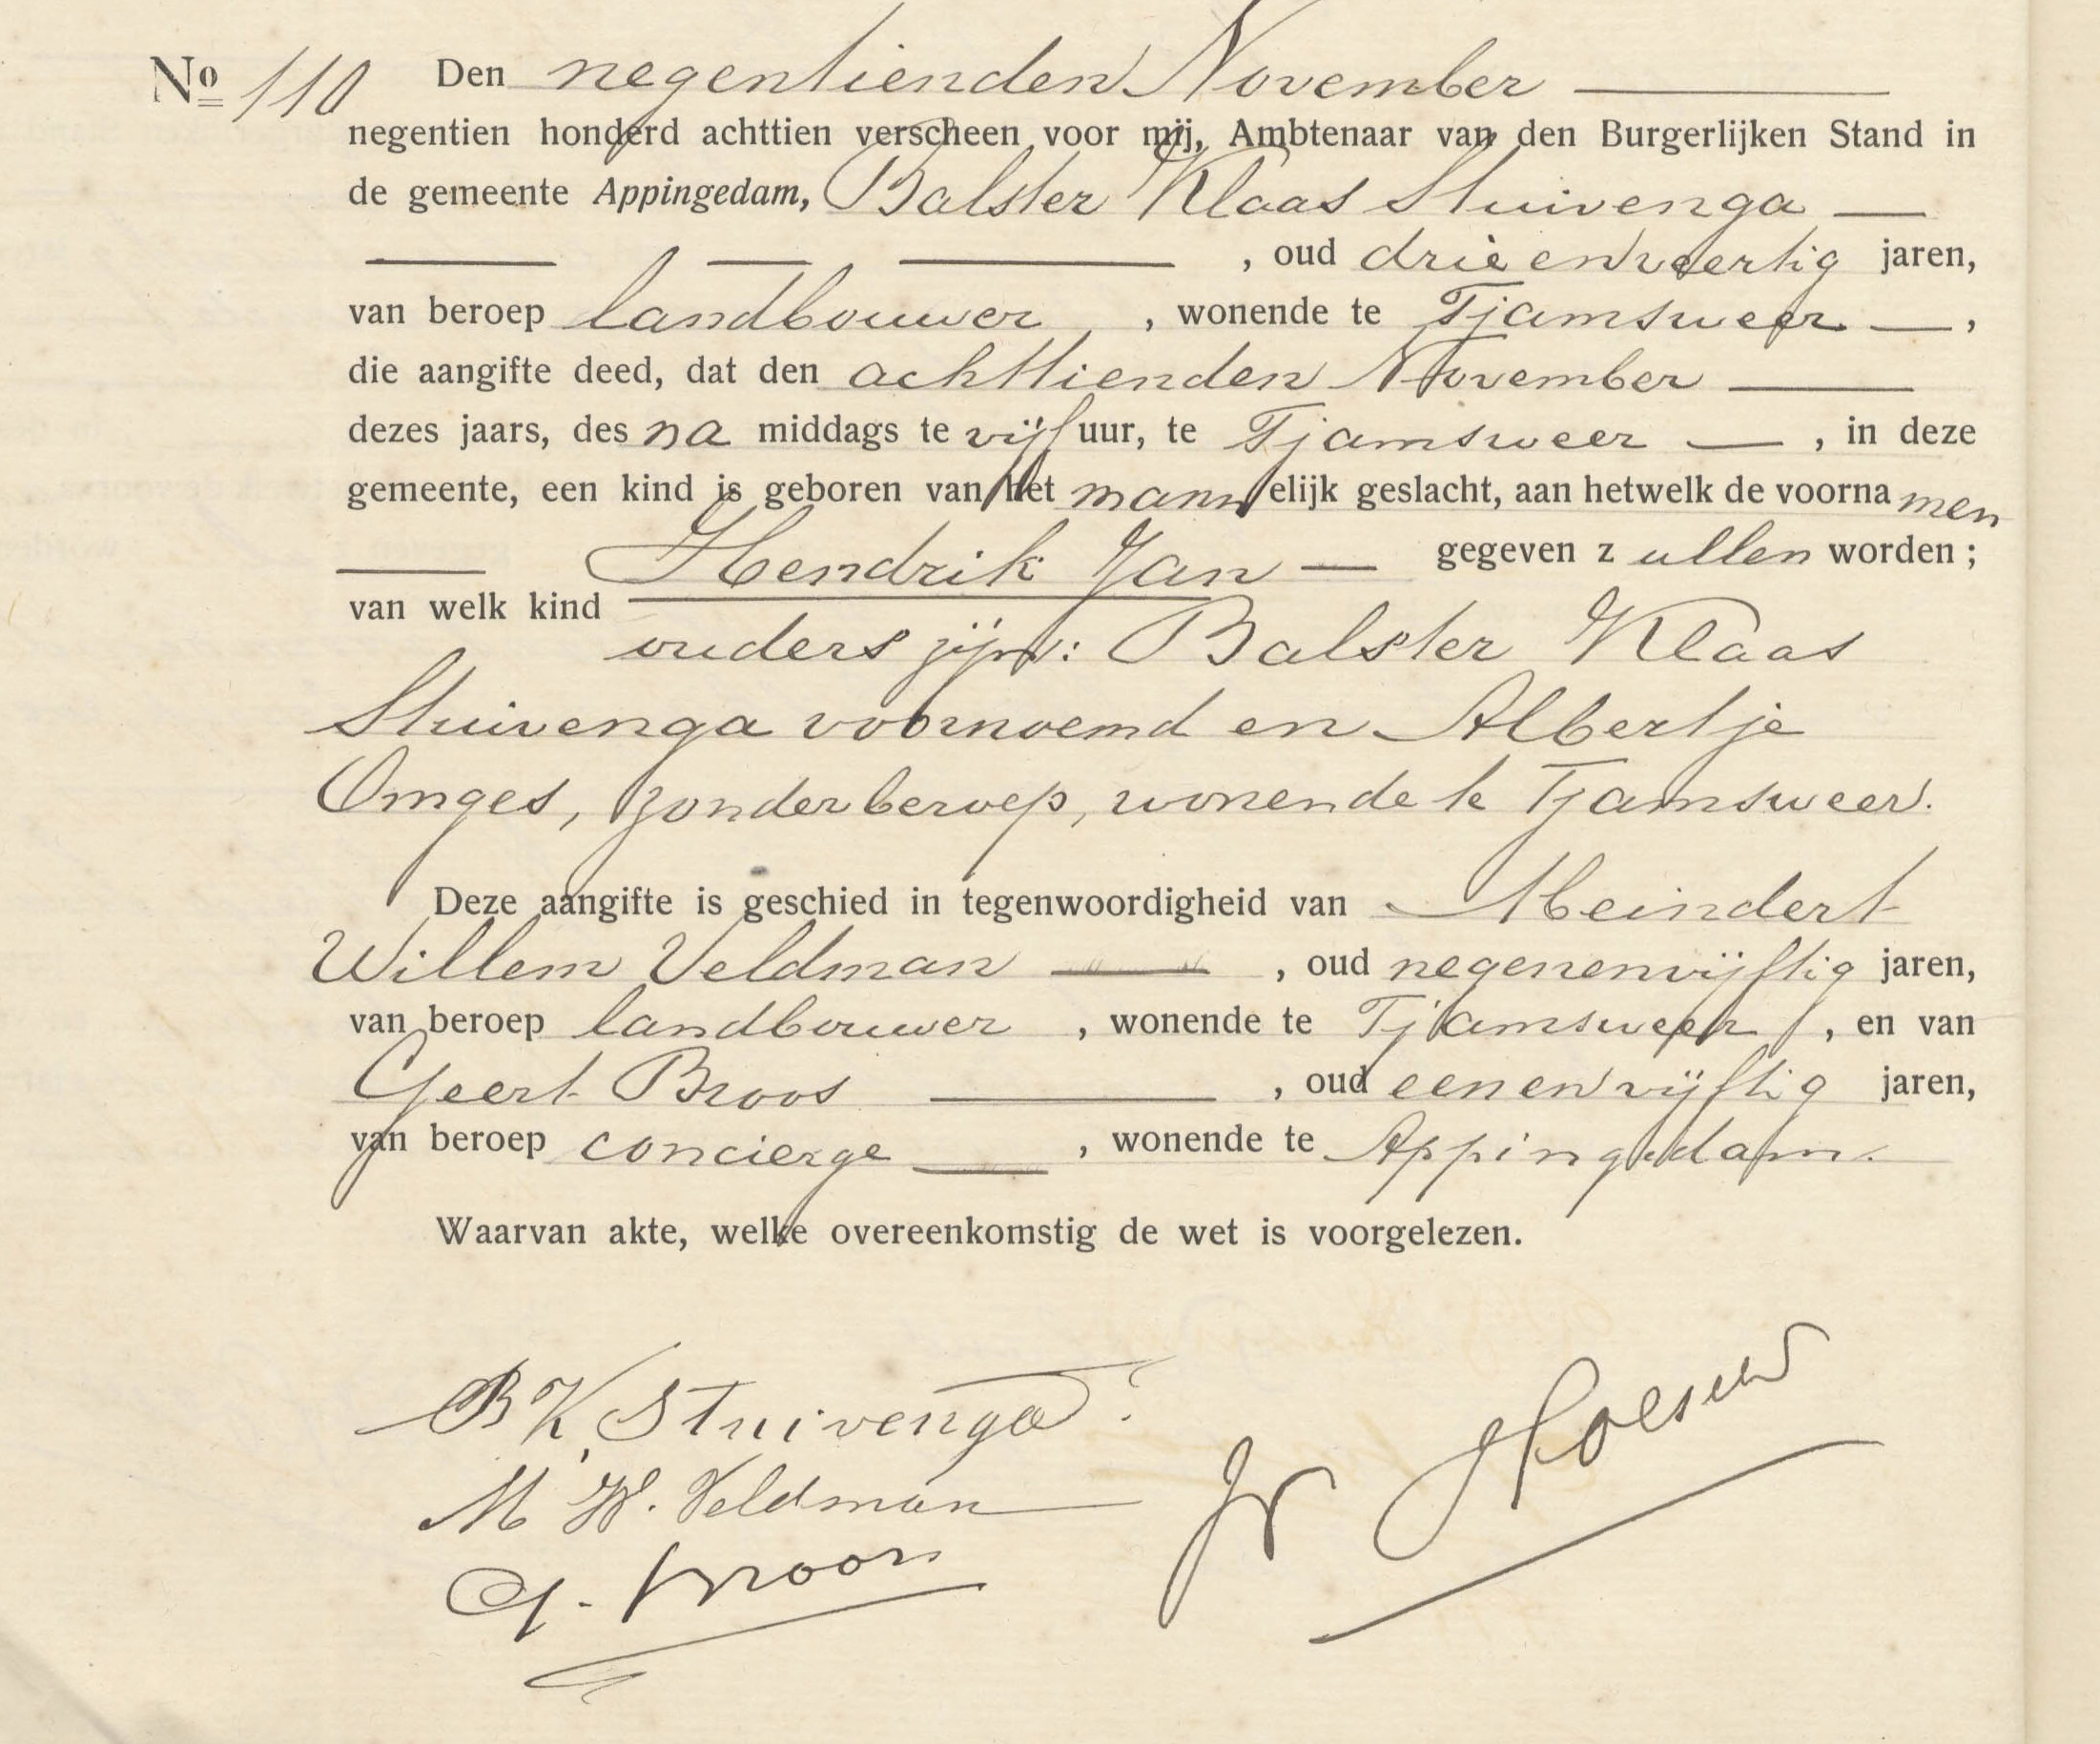 No 110 Den negentienden November
negentien honderd achttien verscheen voor mij, Ambtenaar van den Burgerlijken Stand in
de gemeente Appingedam, Balster Klaas Stuivenga
, oud drieënveertig jaren,
van beroep landbouwer , wonende te Tjamsweer ,
die aangifte deed, dat den achttienden November
dezes jaars, des na middags te vijf uur, te Tjamsweer , in deze
gemeente, een kind is geboren van het mannelijk geslacht, aan hetwelk de voornamen
Hendrik Jan gegeven zullen worden ;
van welk kind
ouders zijn: Balster Klaas
Stuivenga voornoemd en Albertje
Omges, zonder beroep, wonende te Tjamsweer.
Deze aangifte is geschied in tegenwoordigheid van Meindert
Willem Veldman , oud negenenvijftig jaren,
van beroep landbouwer , wonende te Tjamsweer , en van
Geert Broos , oud eenenvijftig jaren,
van beroep concierge , wonende te Appingedam.
Waarvan akte, welke overeenkomstig de wet is voorgelezen.
B K Stuivenga
M W. Veldman
G. Broos